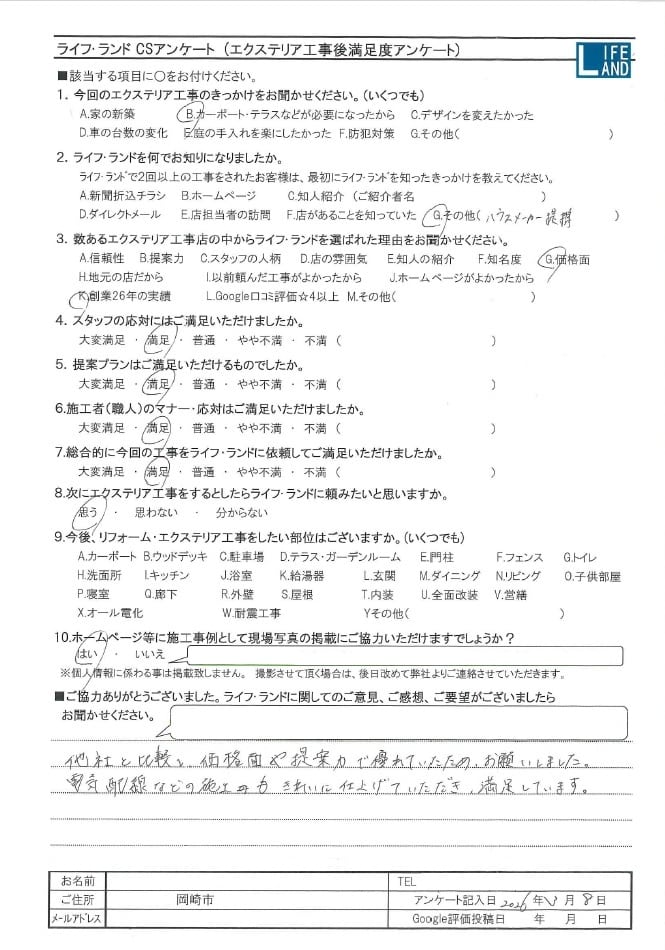 ライフ・ランド CSアンケート （エクステリア工事後満足度アンケート）
LIFE LAND
■該当する項目に〇をお付けください。
1．今回のエクステリア工事のきっかけをお聞かせください。（いくつでも）
A.家の新築 B.カーポート・テラスなどが必要になったから C.デザインを変えたかった
D.車の台数の変化 E.庭の手入れを楽にしたかった F.防犯対策 G.その他（ ）
2．ライフ・ランドを何でお知りになりましたか。
ライフ・ランドで2回以上の工事をされたお客様は、最初にライフ・ランドを知ったきっかけを教えてください。
A.新聞折込チラシ B.ホームページ C.知人紹介（ご紹介者名 ）
D.ダイレクトメール E.店担当者の訪問 F.店があることを知っていた G.その他（ ハウスメーカー提携 ）
3．数あるエクステリア工事店の中からライフ・ランドを選ばれた理由をお聞かせください。
A.信頼性 B.提案力 C.スタッフの人柄 D.店の雰囲気 E.知人の紹介 F.知名度 G.価格面
H.地元の店だから I.以前頼んだ工事がよかったから J.ホームページがよかったから
K.創業26年の実績 L.Google口コミ評価☆4以上 M.その他（ ）
4．スタッフの応対にはご満足いただけましたか。
大変満足 ・ 満足 ・ 普通 ・ やや不満 ・ 不満 （ ）
5．提案プランはご満足いただけるものでしたか。
大変満足 ・ 満足 ・ 普通 ・ やや不満 ・ 不満 （ ）
6.施工者（職人）のマナー・応対はご満足いただけましたか。
大変満足 ・ 満足 ・ 普通 ・ やや不満 ・ 不満 （ ）
7.総合的に今回の工事をライフ・ランドに依頼してご満足いただけましたか。
大変満足 ・ 満足 ・ 普通 ・ やや不満 ・ 不満 （ ）
8.次にエクステリア工事をするとしたらライフ・ランドに頼みたいと思いますか。
思う ・ 思わない ・ 分からない
9.今後、リフォーム・エクステリア工事をしたい部位はございますか。（いくつでも）
A.カーポート B.ウッドデッキ C.駐車場 D.テラス・ガーデンルーム E.門柱 F.フェンス G.トイレ
H.洗面所 I.キッチン J.浴室 K.給湯器 L.玄関 M.ダイニング N.リビング O.子供部屋
P.寝室 Q.廊下 R.外壁 S.屋根 T.内装 U.全面改装 V.営繕
X.オール電化 W.耐震工事 Yその他（ ）
10.ホームページ等に施工事例として現場写真の掲載にご協力いただけますでしょうか？
はい ・ いいえ
※個人情報に係わる事は掲載致しません。 撮影させて頂く場合は、後日改めて弊社よりご連絡させていただきます。
■ご協力ありがとうございました。ライフ・ランドに関してのご意見、ご感想、ご要望がございましたら
お聞かせください。
他社と比較し、価格面や提案力で優れていたため、お願いしました。
電気配線などの施工方もきれいに仕上げていただき、満足しています。
お名前 TEL
ご住所 岡崎市 アンケート記入日 2026年 月 8日
メールアドレス Google評価投稿日 年 月 日